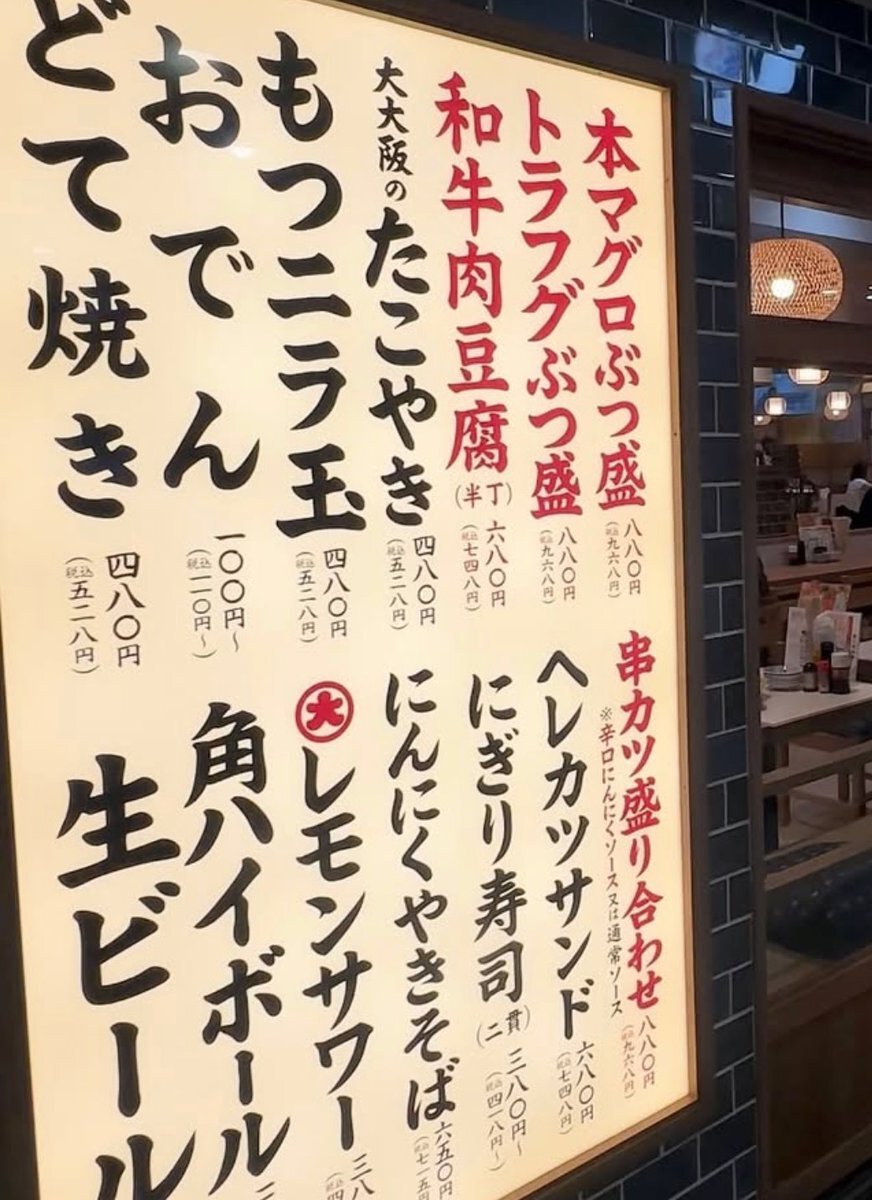 本マグロぶつ盛 八八〇円
(税込九六八円)
トラフグぶつ盛 八八〇円
(税込九六八円)
和牛肉豆腐(半丁) 六八〇円
(税込七四八円)
大大阪のたこやき 四八〇円
(税込五二八円)
もつニラ玉 四八〇円
(税込五二八円)
おでん 一〇〇円~
(税込一一〇円~)
どて焼き 四八〇円
(税込五二八円)
串カツ盛り合わせ 八八〇円
※辛口にんにくソース又は通常ソース
(税込九六八円)
ヘレカツサンド 六八〇円
(税込七四八円)
にぎり寿司(二貫) 三八〇円~
(税込四一八円~)
にんにくやきそば 六五〇円
(税込七一五円
大レモンサワー 三八
角ハイボール
生ビール